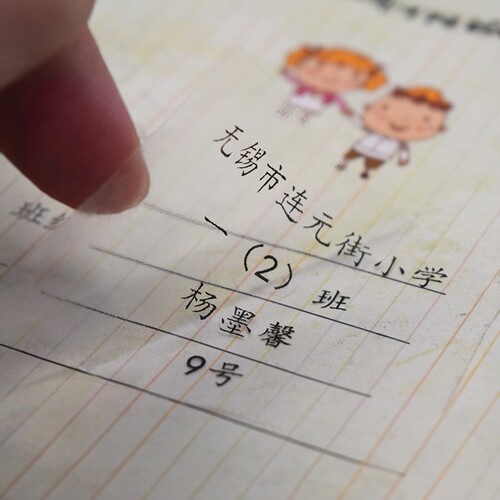 无锡市连元街小学
一（2）班
杨墨馨
9号